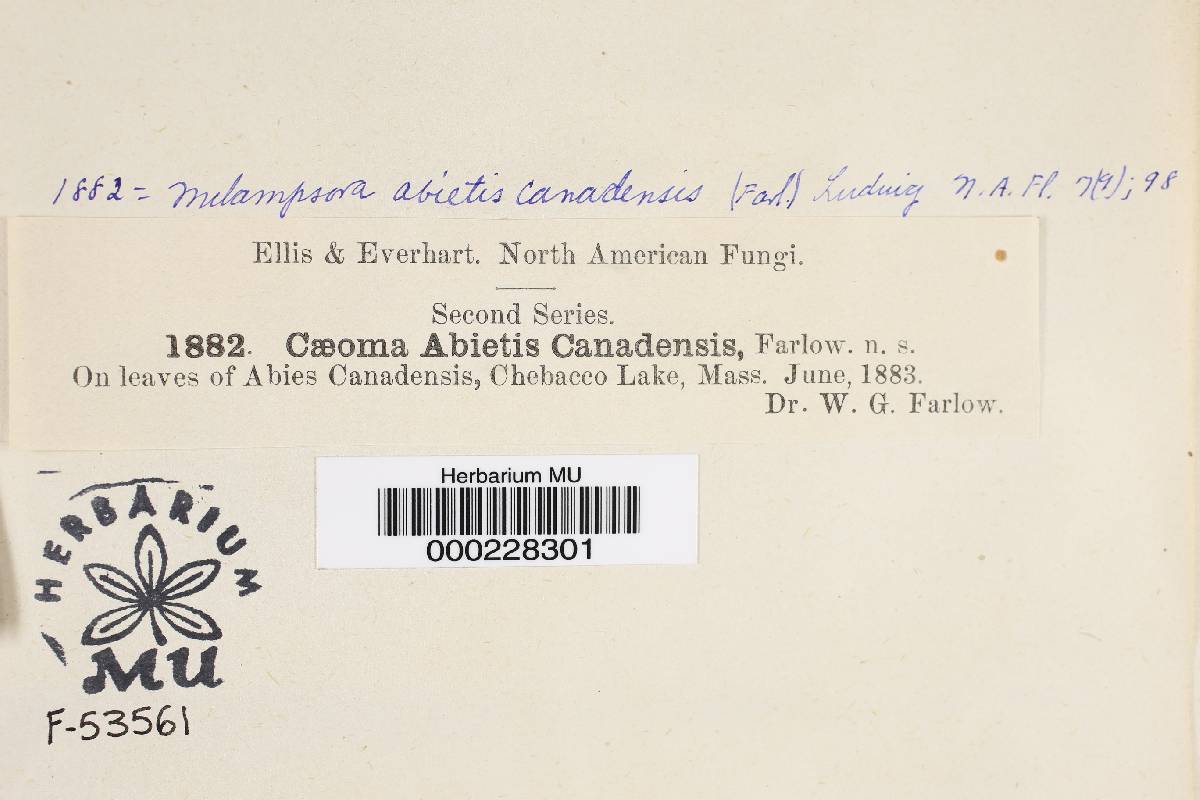 1882 = Melampsora abietis canadensis (Farl.) Ludwig N.A.Fl. 7(9); 98
Ellis & Everhart. North American Fungi.
Second Series.
1882. Cæoma Abietis Canadensis, Farlow. n. s.
On leaves of Abies Canadensis, Chebacco Lake, Mass. June, 1883.
Dr. W. G. Farlow.
Herbarium MU
000228301
HERBARIUM
MU
F-53561